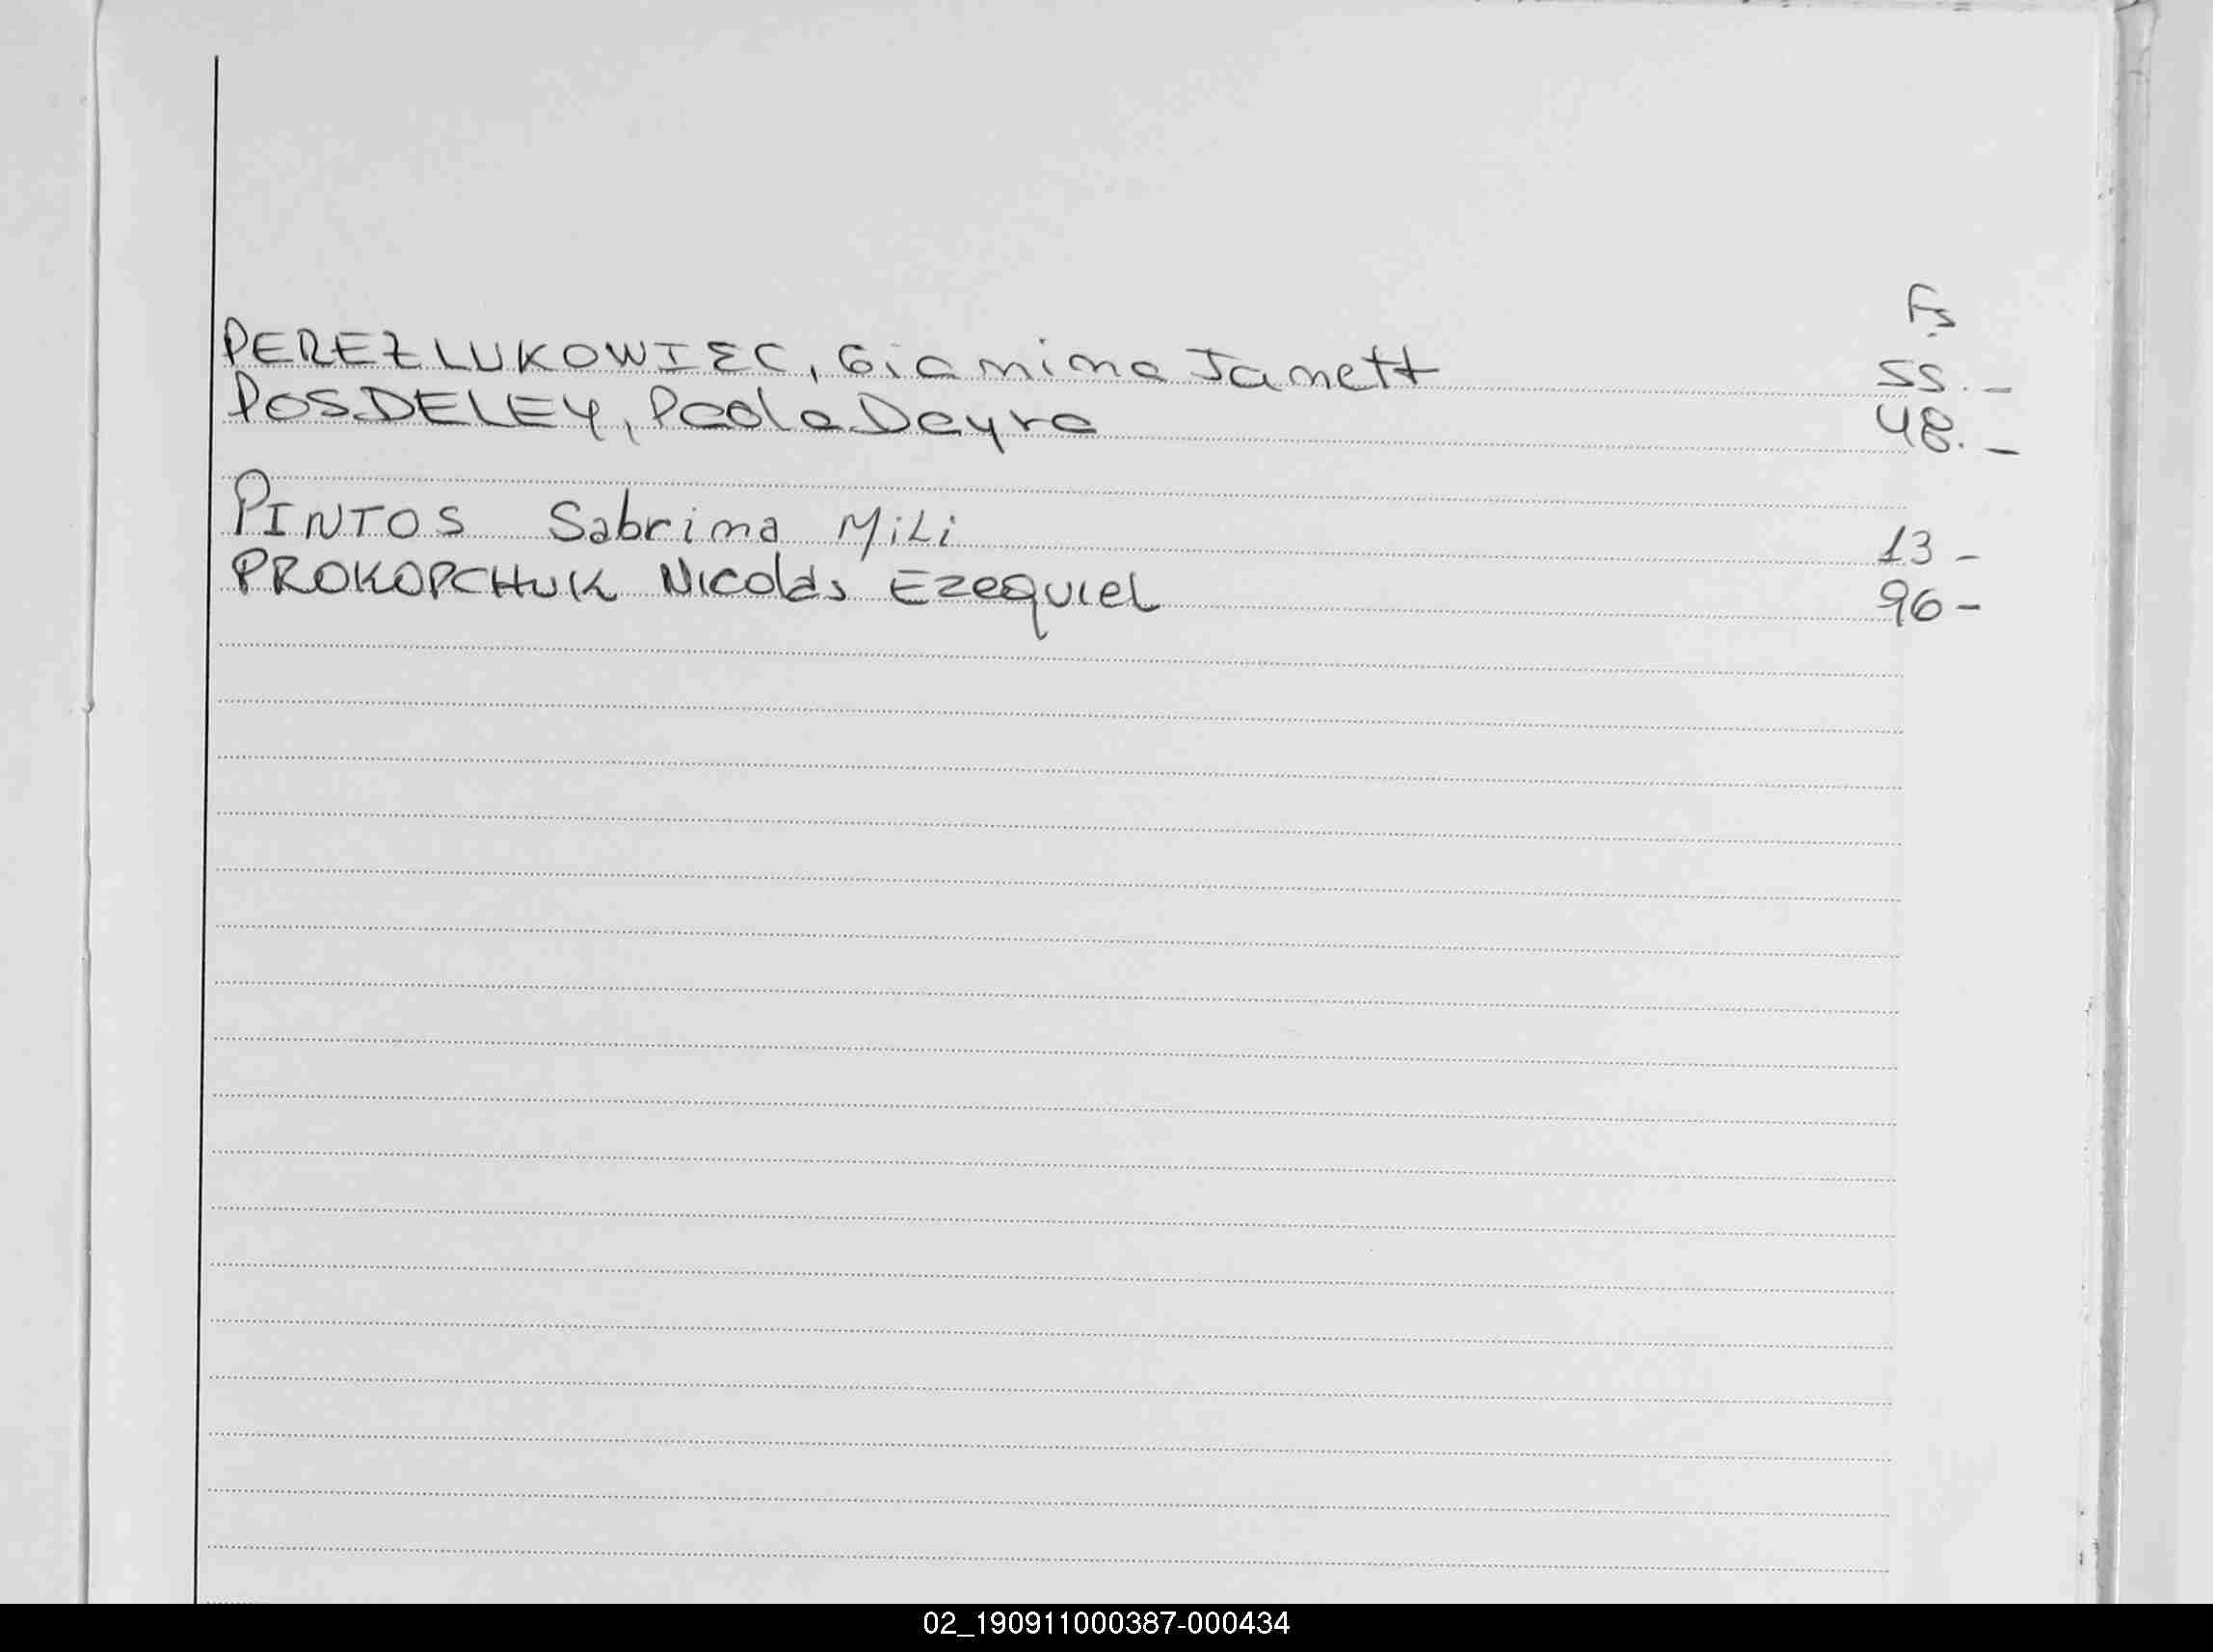 Fs
PEREZ LUKOWIEC, Gianina Janett 55.-
POSDELEY, Paola Deyra 48.-
PINTOS Sabrina MiLi 13-
PROKOPCHUK Nicolás EzequieL 96-
02_190911000387-000434